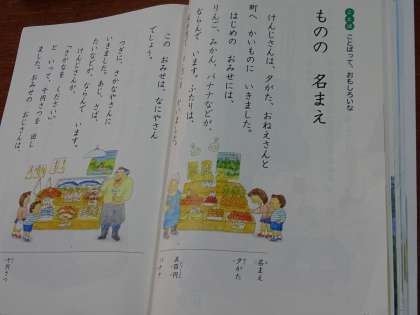 ことばって、おもしろいな
ものの 名まえ
けんじさんは、夕がた、おねえさんと
町へ かいものに いきました。
はじめの おみせには、
りんご、みかん、バナナなどが、
ならんで います。ふたりは、
この おみせは、なにやさん
でしょう。
つぎに、さかなやさんに
いきました。あじ、さば、
たいなどが、ならんで います。
けんじさんが、
「さかなを ください。」
と いって、千円さつを 出し
ました。おみせの おじさんは、
名まえ
夕がた
五百円
千円さつ